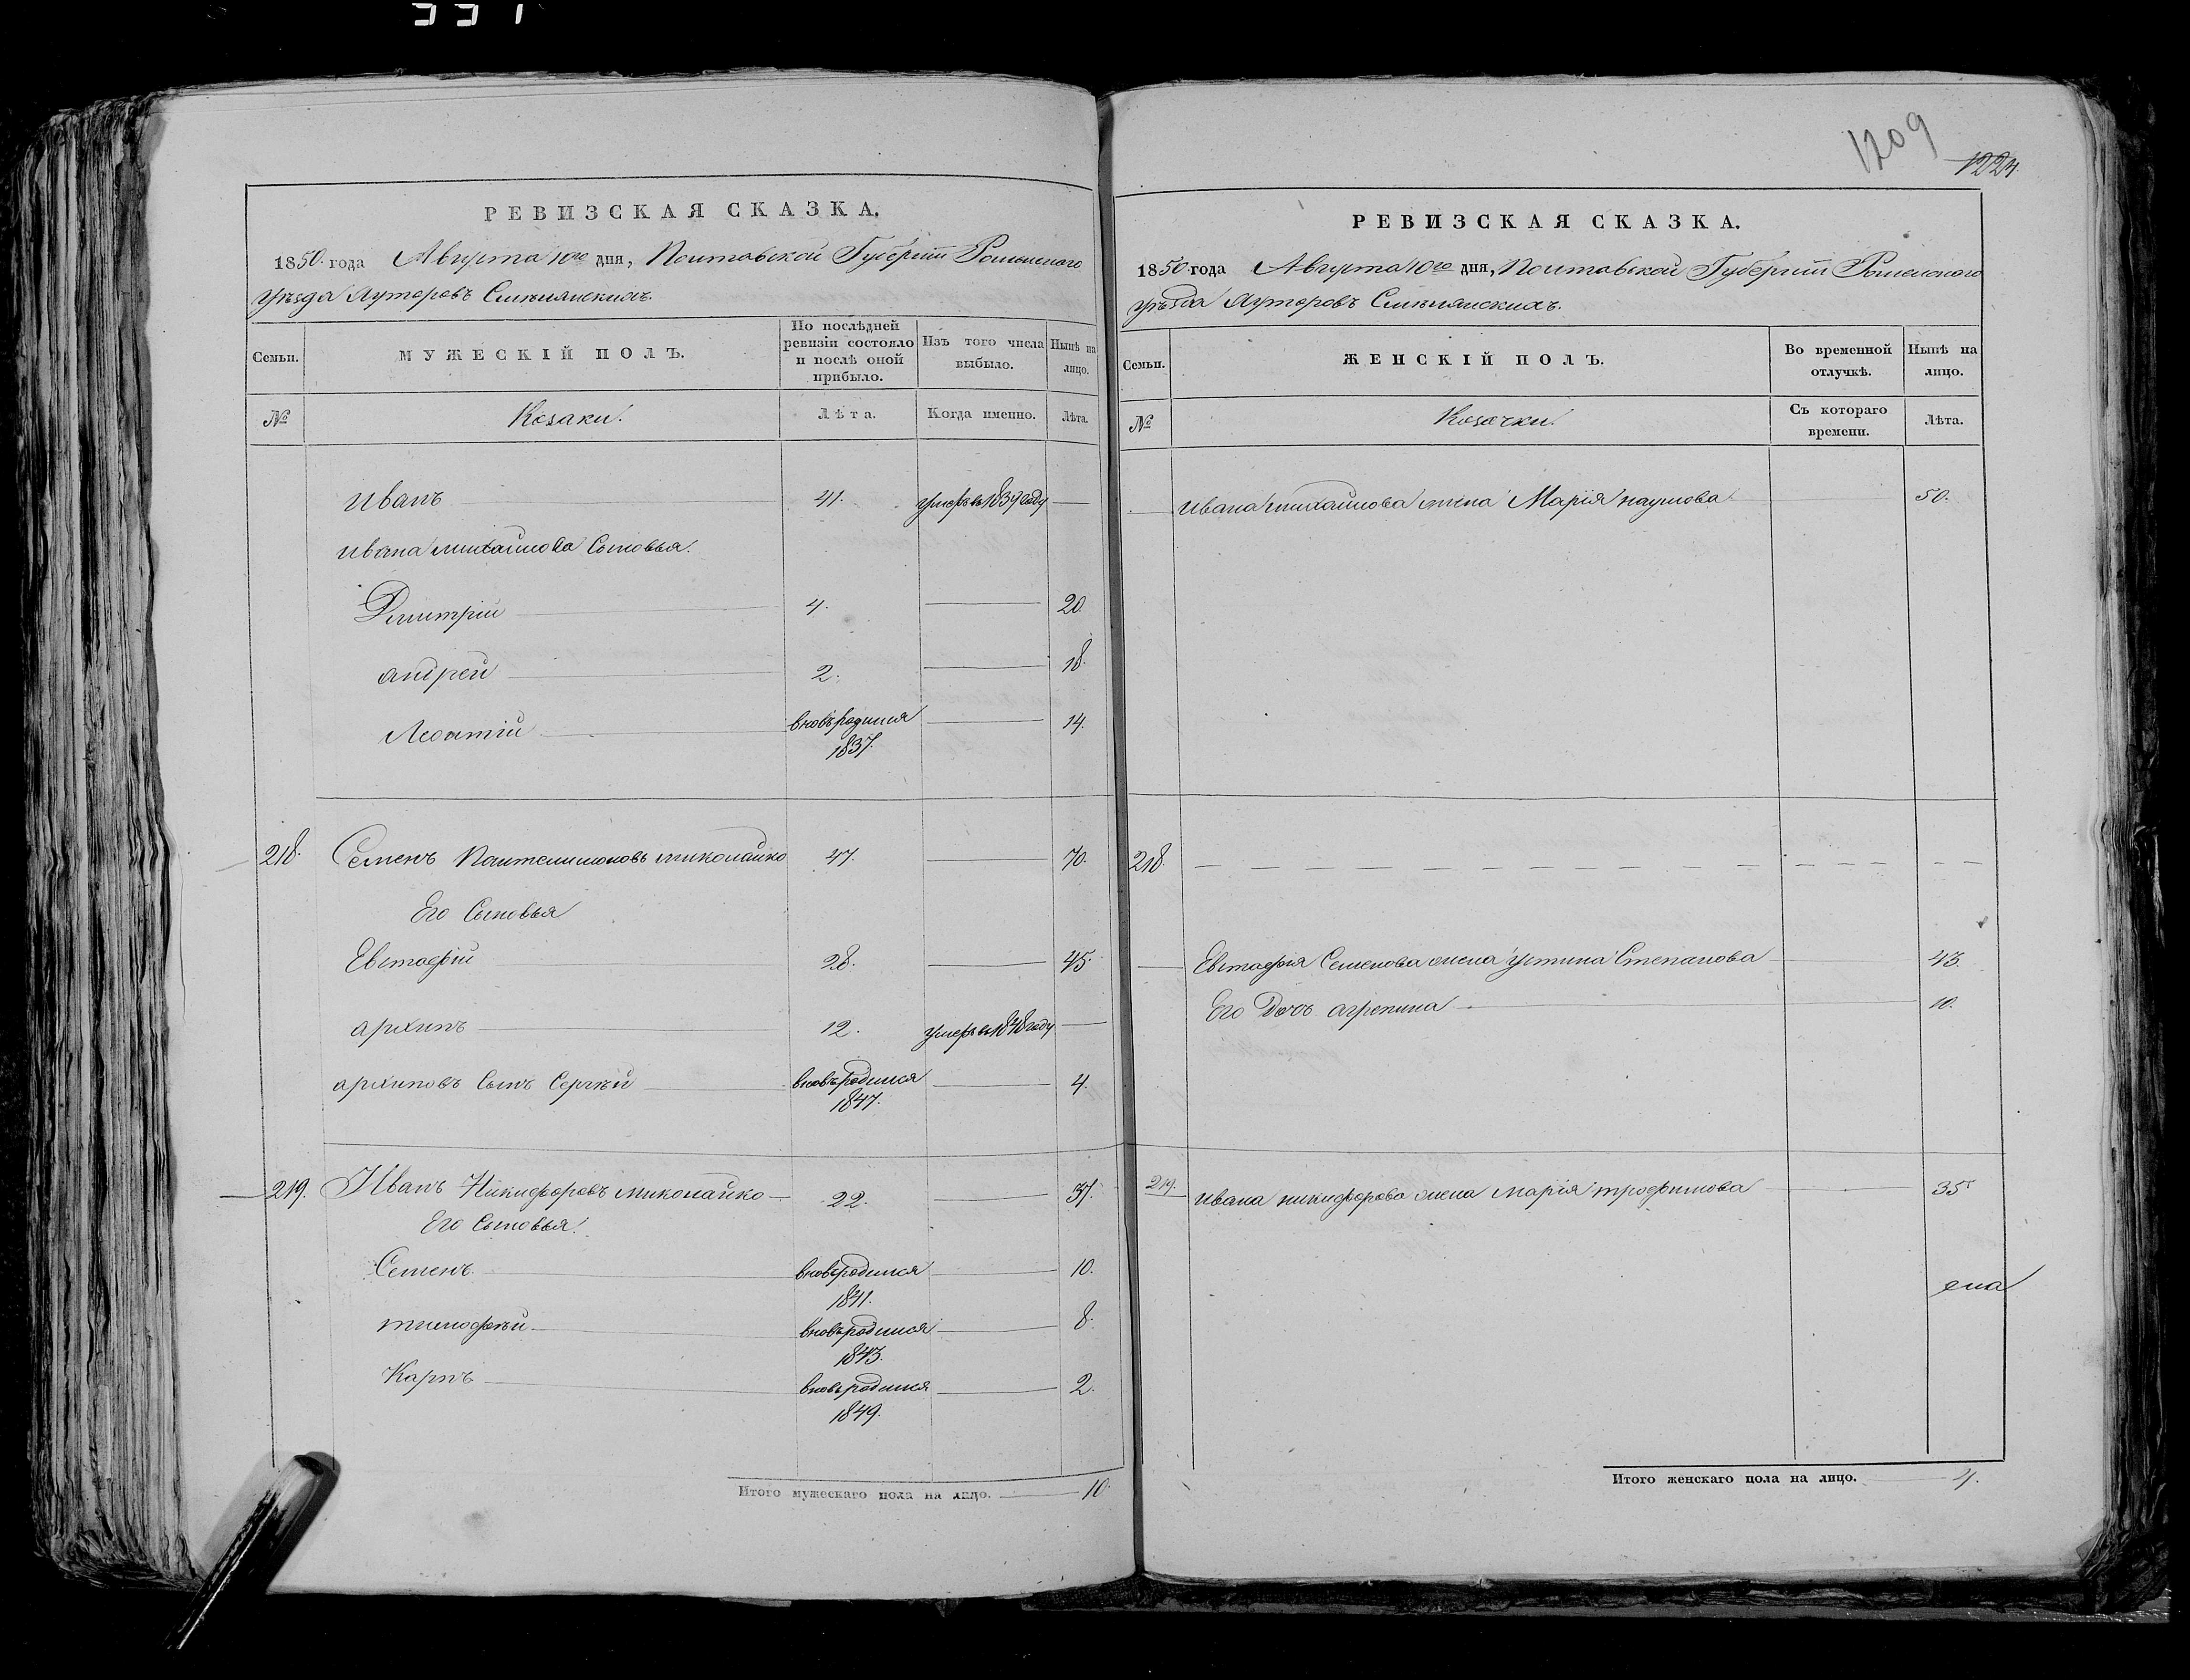 331
РЕВИЗСКАЯ СКАЗКА.
1850 года Августа 10го дня, Полтавской Губернiи Роменского
уѣзда Хуторовъ Смѣлянскихъ.
Семьи.
МУЖЕСКІЙ ПОЛЪ.
По послѣдней ревизіи состояло и послѣ оной прибыло.
Изъ того числа выбыло.
Нынѣ на лицо.
№
Козаки.
Лѣта.
Когда именно.
Лѣта.
Иванъ 41. умеръ въ 1839 году
Ивана Михайлова Сыновья.
Дмитрій 4. 20.
Андрей 2. 18.
Леонтій вновь родился 14.
1837.
218. Семенъ Пантелимоновъ Миколайко 47. 70.
Его Сыновья
Евстафій 28. 45.
архипъ 12. умеръ въ 1848 году
архиповъ Сынъ Сергѣй вновь родился 4.
1847.
219. Иванъ Никифоровъ Миколайко 22. 37.
Его Сыновья.
Семенъ. вновь родился 10.
1841.
тимофѣй. вновь родился 8.
1843.
Карпъ вновь родился 2.
1849.
Итого мужескаго пола на лицо. 10.
1209
1224.
РЕВИЗСКАЯ СКАЗКА.
1850 года Августа 10го дня, Полтавской Губернiи Роменского
уѣзда Хуторовъ Смѣлянскихъ.
Семьи.
ЖЕНСКІЙ ПОЛЪ.
Во временной отлучкѣ.
Нынѣ на лицо.
№
Козачки.
Съ котораго времени.
Лѣта.
Ивана Михайлова жена Марія Наумова 50.
218.
Евстафія Семенова жена Устина Степанова 43.
Его Дочь агрепина 10.
219. Ивана никифорова жена Марія трофимова 35
Итого женскаго пола на лицо. 4.